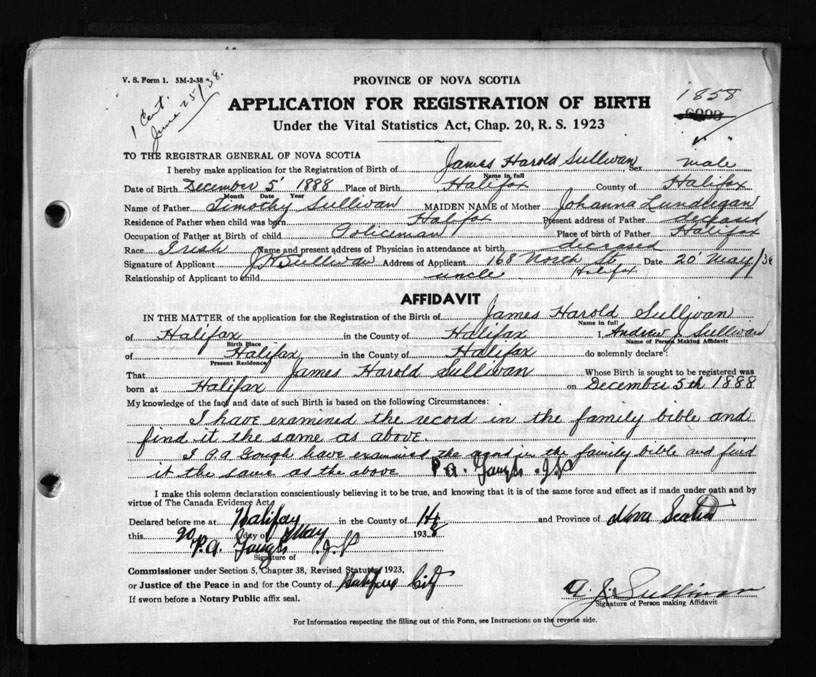 V. S. Form 1. 5M-2-38
1 Cert.
June 25/38.
PROVINCE OF NOVA SCOTIA
1858
APPLICATION FOR REGISTRATION OF BIRTH
Under the Vital Statistics Act, Chap. 20, R. S. 1923
TO THE REGISTRAR GENERAL OF NOVA SCOTIA
I hereby make application for the Registration of Birth of James Harold Sullivan Sex male
Name in full
Date of Birth December 5 1888 Place of Birth Halifax County of Halifax
Month Date Year
Name of Father Timothy Sullivan MAIDEN NAME of Mother Johanna Lundregan
Residence of Father when child was born Halifax Present address of Father deceased
Occupation of Father at Birth of child Policeman Place of birth of Father Halifax
Race Irish Name and present address of Physician in attendance at birth deceased
Signature of Applicant Sullivan Address of Applicant 168 North St. Halifax Date 20 May/38
Relationship of Applicant to child uncle
AFFIDAVIT
IN THE MATTER of the application for the Registration of the Birth of James Harold Sullivan
Name in full
of Halifax in the County of Halifax I, Andrew J. Sullivan
Birth Place Name of Person Making Affidavit
of Halifax in the County of Halifax do solemnly declare:
Present Residence
That James Harold Sullivan Whose Birth is sought to be registered was
born at Halifax on December 5th 1888
My knowledge of the fact and date of such Birth is based on the following Circumstances:
I have examined the record in the family bible and
find it the same as above.
I P.A. Gough have examined the record in the family bible and find
it the same as the above P.A. Gough J.P
I make this solemn declaration conscientiously believing it to be true, and knowing that it is of the same force and effect as if made under oath and by
virtue of The Canada Evidence Act.
Declared before me at Halifax in the County of Hfx and Province of Nova Scotia
this 20 day of May 1938
P.A. Gough J.P
Signature of
Commissioner under Section 5, Chapter 38, Revised Statutes, 1923,
or Justice of the Peace in and for the County of Halifax City
If sworn before a Notary Public affix seal.
A. J. Sullivan
Signature of Person making Affidavit
For Information respecting the filling out of this Form, see Instructions on the reverse side.